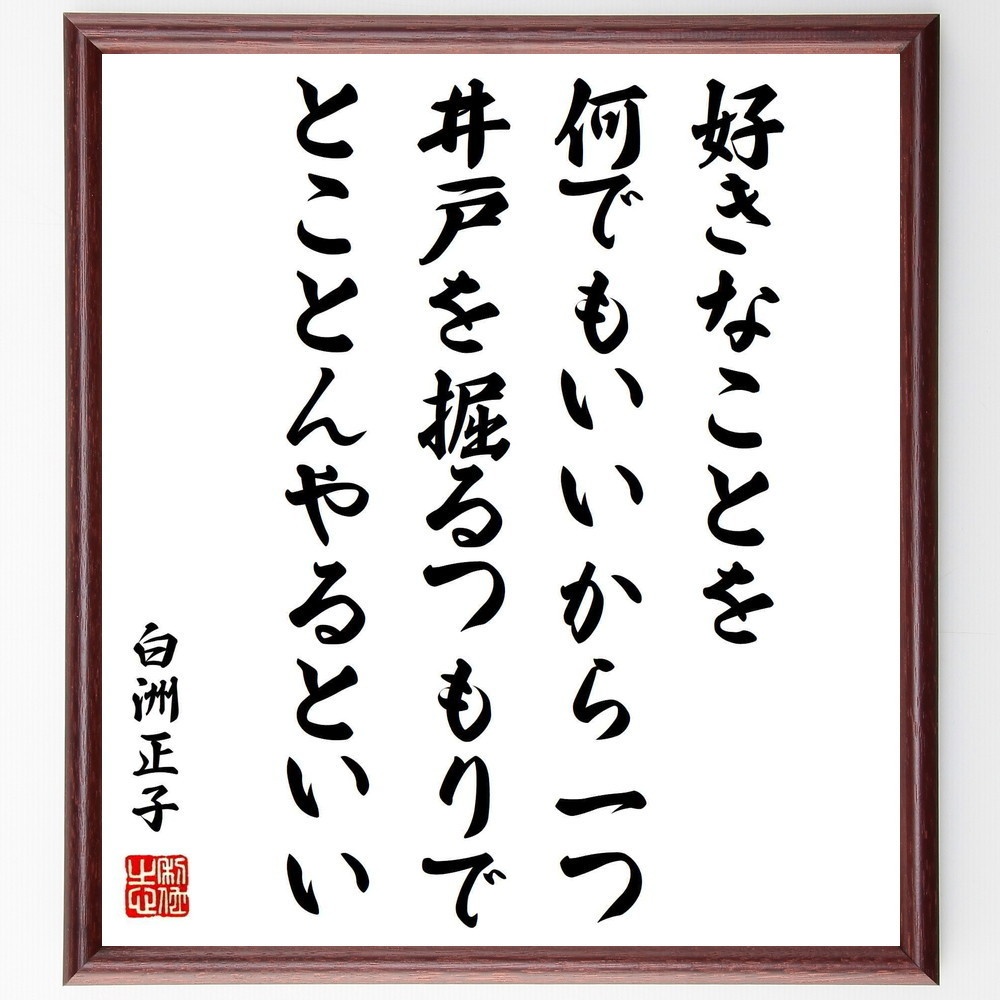 好きなことを
何でもいいから一つ
井戸を掘るつもりで
とことんやるといい
白洲正子